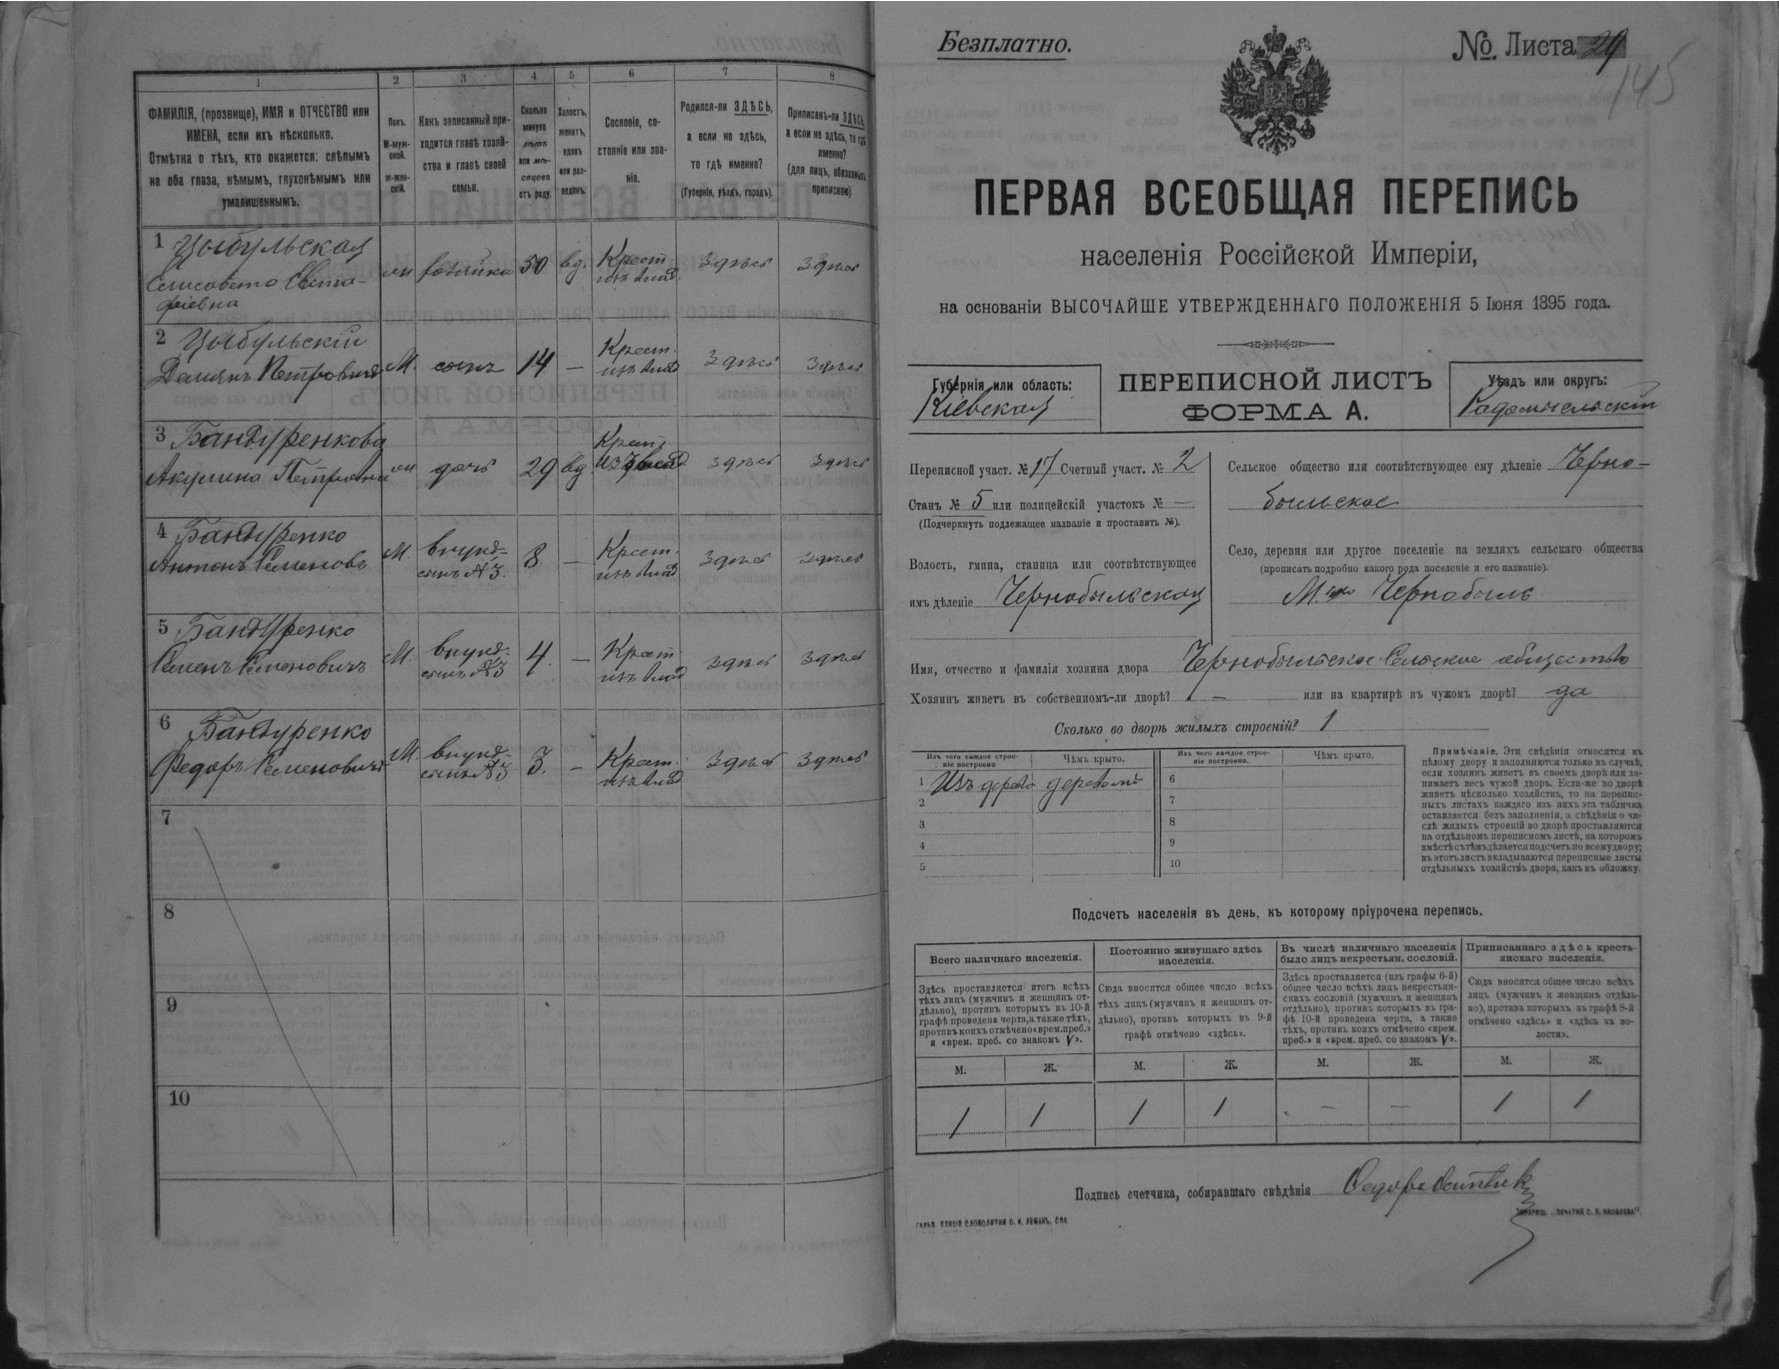 1
2
3
4
5
6
7
8
ФАМИЛІЯ, (прозвище), ИМЯ и ОТЧЕСТВО или
ИМЕНА, если ихъ нѣсколько.
Отмѣтка о тѣхъ, кто окажется: слѣпымъ
на оба глаза, нѣмымъ, глухонѣмымъ или
умалишеннымъ.
Полъ.
М-муж-
ской.
ж-жен-
скій.
Какъ записанный при-
ходится главѣ хозяй-
ства и главѣ своей
семьи.
Сколько
минуло
лѣтъ
или мѣ-
сяцевъ
отъ роду.
Холостъ,
женатъ,
вдовъ
или раз-
веденъ.
Сословіе, со-
стояніе или зва-
ніе.
Родился-ли ЗДѢСЬ,
а если не здѣсь,
то гдѣ именно?
(Губернія, уѣздъ, городъ).
Приписанъ-ли ЗДѢСЬ,
а если не здѣсь, то гдѣ
именно?
(для лицъ, обязанныхъ
припискою)
1 Цыбульская
Елисовета
фіевна
хозяйка 50 вд. Крест. здѣсь здѣсь
2 Цыбульскій
Демьянъ Петровичъ М. сынъ 14 — Крест. здѣсь здѣсь
3 Бандуренкова
Акулина Петровна дочь 29 вд. Крест. здѣсь здѣсь
4 Бандуренко
Антонъ Семеновъ М. внукъ-
сынъ №3. 8 — Крест. здѣсь здѣсь
5 Бандуренко
Семенъ Семеновичъ М. внукъ-
сынъ №3 4. — Крест. здѣсь здѣсь
6 Бандуренко
Федоръ Семеновичъ М. внукъ-
сынъ №3 3. — Крест. здѣсь здѣсь
7
8
9
10
Безплатно.
№. Листа 29
145
ПЕРВАЯ ВСЕОБЩАЯ ПЕРЕПИСЬ
населенія Россійской Имперіи,
на основаніи ВЫСОЧАЙШЕ УТВЕРЖДЕННАГО ПОЛОЖЕНІЯ 5 Іюня 1895 года.
Губернія или область:
Кіевская
ПЕРЕПИСНОЙ ЛИСТЪ
ФОРМА А.
Уѣздъ или округъ:
Радомысльскій
Переписной участ. № 17 Счетный участ. № 2
Станъ № 5 или полицейскій участокъ № —
(Подчеркнуть подлежащее названіе и проставить №).
Волость, гмина, станица или соотвѣтствующее
имъ дѣленіе Чернобыльская
Сельское общество или соотвѣтствующее ему дѣленіе Черно-
быльское
Село, деревня или другое поселеніе на земляхъ сельскаго общества
(прописать подробно какого рода поселеніе и его названіе).
Чернобыль
Имя, отчество и фамилія хозяина двора Чернобыльское Сельское общество
Хозяинъ живетъ въ собственномъ-ли дворѣ? — или на квартирѣ въ чужомъ дворѣ? да
Сколько во дворѣ жилыхъ строеній? 1
Изъ чего каждое строе-
ніе построено.
Чѣмъ крыто.
Изъ чего каждое строе-
ніе построено.
Чѣмъ крыто.
1 Изъ дерева деревомъ
2
3
4
5
6
7
8
9
10
Примѣчаніе. Эти свѣдѣнія относятся къ
цѣлому двору и заполняются только въ случаѣ,
если хозяинъ живетъ въ своемъ дворѣ или за-
нимаетъ весь чужой дворъ. Если-же во дворѣ
живетъ нѣсколько хозяйствъ, то на перепис-
ныхъ листахъ каждаго изъ нихъ эта табличка
оставляется безъ заполненія, а свѣдѣнія о чи-
слѣ жилыхъ строеній во дворѣ проставляются
на отдѣльномъ переписномъ листѣ, на которомъ
вмѣстѣ съ тѣмъ дѣлается подсчетъ по всему двору;
въ этотъ листъ вкладываются переписные листы
отдѣльныхъ хозяйствъ двора, какъ въ обложку.
Подсчетъ населенія въ день, къ которому пріурочена перепись.
Всего наличнаго населенія.
Постоянно живущаго здѣсь
населенія.
Въ числѣ наличнаго населенія
было лицъ некрестьян. сословій.
Приписаннаго здѣсь кресть-
янскаго населенія.
Здѣсь проставляется итогъ всѣхъ
тѣхъ лицъ (мужчинъ и женщинъ от-
дѣльно), противъ которыхъ въ 10-й
графѣ проведена черта, а также тѣхъ,
противъ коихъ отмѣчено «врем. преб.»
и «врем. преб. со знакомъ V».
Сюда вносится общее число всѣхъ
тѣхъ лицъ (мужчинъ и женщинъ от-
дѣльно), противъ которыхъ въ 9-й
графѣ отмѣчено «здѣсь».
Здѣсь проставляется (изъ графы 6-й)
общее число всѣхъ лицъ некрестьян-
скихъ сословій (мужчинъ и женщинъ
отдѣльно), противъ которыхъ въ гра-
фѣ 10-й проведена черта, а также
тѣхъ, противъ коихъ отмѣчено «врем.
преб.» и «врем. преб. со знакомъ V».
Сюда вносится общее число всѣхъ
лицъ (мужчинъ и женщинъ отдѣль-
но), противъ которыхъ въ графѣ 8-й
отмѣчено «здѣсь» и «здѣсь въ во-
лости».
М. Ж. М. Ж. М. Ж. М. Ж.
1 1 1 1 — — 1 1
Подпись счетчика, собиравшаго свѣдѣнія